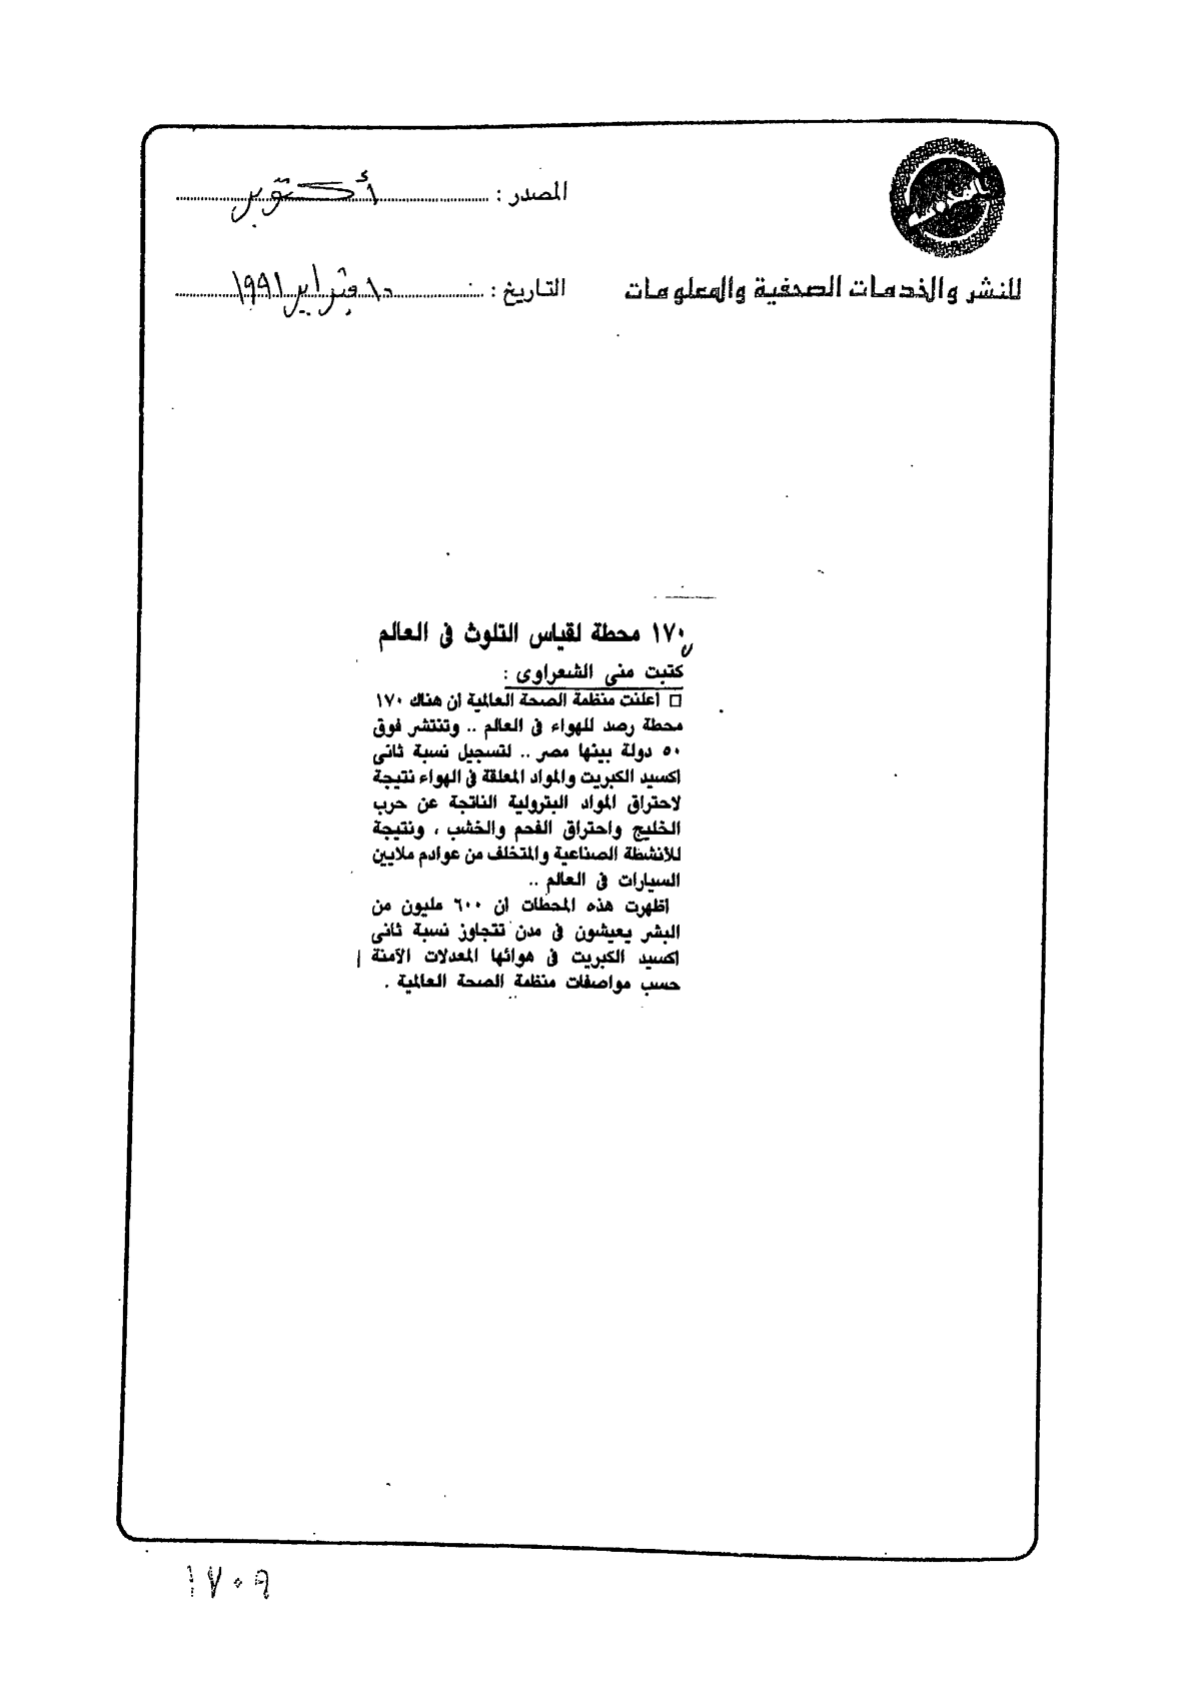 المصدر : أكتوبر
للنشر والخدمات الصحفية والمعلومات
التاريخ : ١٠ فبراير ١٩٩١
١٧٠ محطة لقياس التلوث فى العالم
كتبت منى الشعراوى :
□ اعلنت منظمة الصحة العالمية ان هناك ١٧٠
محطة رصد للهواء فى العالم .. وتنتشر فوق
٥٠ دولة بينها مصر .. لتسجيل نسبة ثانى
اكسيد الكبريت والمواد المعلقة فى الهواء نتيجة
لاحتراق المواد البترولية الناتجة عن حرب
الخليج واحتراق الفحم والخشب ، ونتيجة
للأنشطة الصناعية والمتخلف من عوادم ملايين
السيارات فى العالم ..
اظهرت هذه المحطات ان ٦٠٠ مليون من
البشر يعيشون فى مدن تتجاوز نسبة ثانى
اكسيد الكبريت فى هوائها المعدلات الآمنة
حسب مواصفات منظمة الصحة العالمية .
١٧٠٩